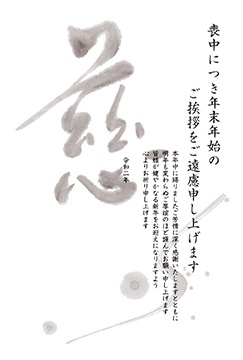 喪中につき年末年始の
ご挨拶をご遠慮申し上げます
本年中に賜りましたご芳情に深く感謝いたしますとともに
明年も変わらぬご厚誼のほど謹んでお願い申し上げます
皆様が健やかなる新年をお迎えになりますよう
心よりお祈り申し上げます
令和二年
慈